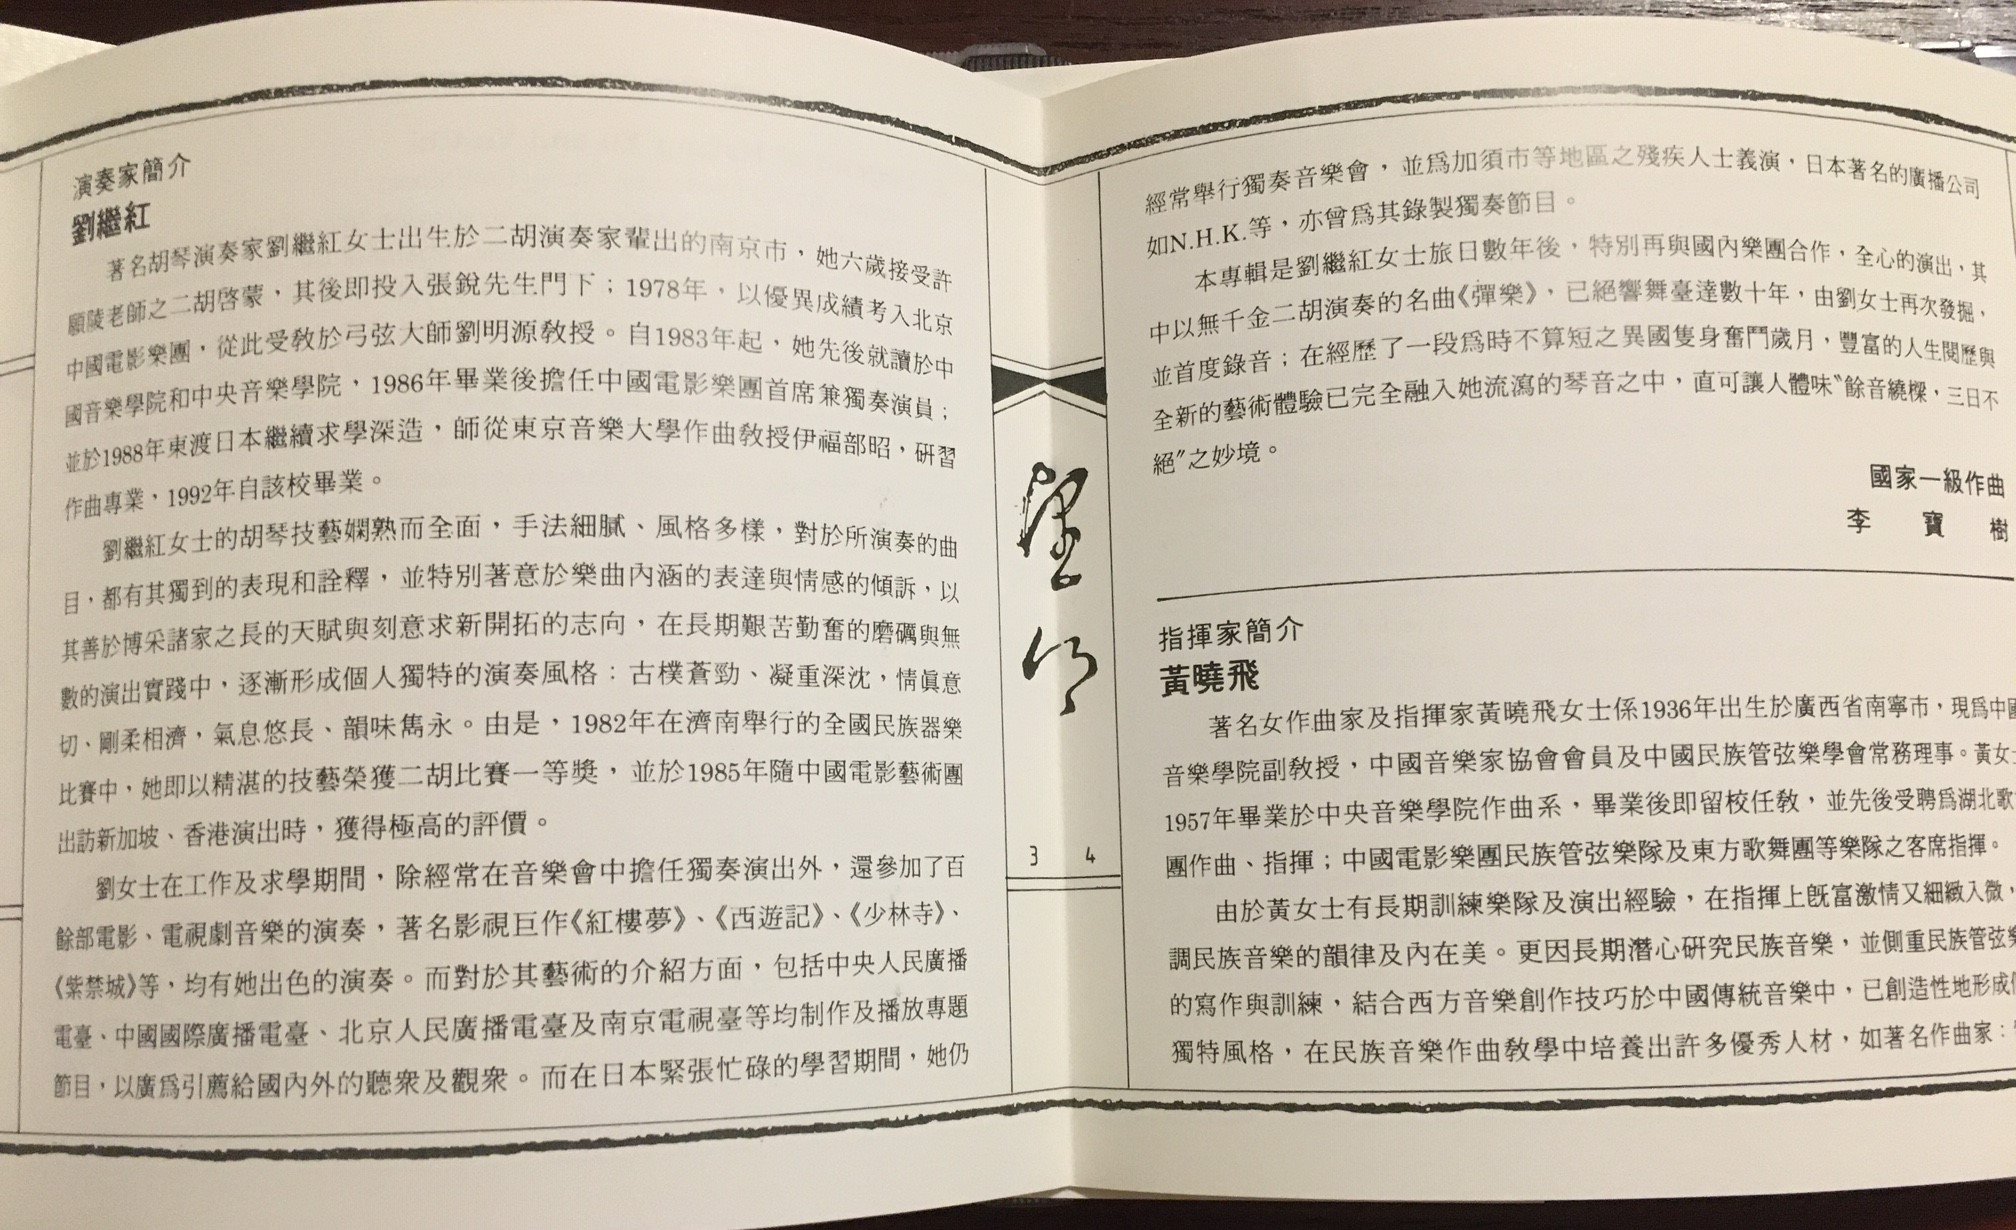 演奏家簡介
劉繼紅
著名胡琴演奏家劉繼紅女士出生於二胡演奏家輩出的南京市，她六歲接受許
願陵老師之二胡啓蒙，其後即投入張銳先生門下；1978年，以優異成績考入北京
中國電影樂團，從此受教於弓弦大師劉明源教授。自1983年起，她先後就讀於中
國音樂學院和中央音樂學院，1986年畢業後擔任中國電影樂團首席兼獨奏演員；
並於1988年東渡日本繼續求學深造，師從東京音樂大學作曲教授伊福部昭，研習
作曲專業，1992年自該校畢業。
劉繼紅女士的胡琴技藝嫻熟而全面，手法細膩、風格多樣，對於所演奏的曲
目，都有其獨到的表現和詮釋，並特別著意於樂曲內涵的表達與情感的傾訴，以
其善於博采諸家之長的天賦與刻意求新開拓的志向，在長期艱苦勤奮的磨礪與無
數的演出實踐中，逐漸形成個人獨特的演奏風格：古樸蒼勁、凝重深沈，情眞意
切、剛柔相濟，氣息悠長、韻味雋永。由是，1982年在濟南舉行的全國民族器樂
比賽中，她即以精湛的技藝榮獲二胡比賽一等獎，並於1985年隨中國電影藝術團
出訪新加坡、香港演出時，獲得極高的評價。
劉女士在工作及求學期間，除經常在音樂會中擔任獨奏演出外，還參加了百
餘部電影、電視劇音樂的演奏，著名影視巨作《紅樓夢》、《西遊記》、《少林寺》、
《紫禁城》等，均有她出色的演奏。而對於其藝術的介紹方面，包括中央人民廣播
電臺、中國國際廣播電臺、北京人民廣播電臺及南京電視臺等均制作及播放專題
節目，以廣爲引薦給國內外的聽衆及觀衆。而在日本緊張忙碌的學習期間，她仍
3 4
經常舉行獨奏音樂會，並爲加須市等地區之殘疾人士義演，日本著名的廣播公司
如N.H.K.等，亦曾爲其錄製獨奏節目。
本專輯是劉繼紅女士旅日數年後，特別再與國內樂團合作，全心的演出，其
中以無千金二胡演奏的名曲《彈樂》，已絕響舞臺達數十年，由劉女士再次發掘，
並首度錄音；在經歷了一段爲時不算短之異國隻身奮鬥歲月，豐富的人生閱歷與
全新的藝術體驗已完全融入她流瀉的琴音之中，直可讓人體味〝餘音繞樑，三日不
絕〞之妙境。
國家一級作曲
李 寶 樹
指揮家簡介
黃曉飛
著名女作曲家及指揮家黃曉飛女士係1936年出生於廣西省南寧市，現爲中國
音樂學院副教授，中國音樂家協會會員及中國民族管弦樂學會常務理事。黃女士
1957年畢業於中央音樂學院作曲系，畢業後即留校任教，並先後受聘爲湖北歌
團作曲、指揮；中國電影樂團民族管弦樂隊及東方歌舞團等樂隊之客席指揮。
由於黃女士有長期訓練樂隊及演出經驗，在指揮上既富激情又細緻入微，
調民族音樂的韻律及內在美。更因長期潛心研究民族音樂，並側重民族管弦樂
的寫作與訓練，結合西方音樂創作技巧於中國傳統音樂中，已創造性地形成
獨特風格，在民族音樂作曲教學中培養出許多優秀人材，如著名作曲家：